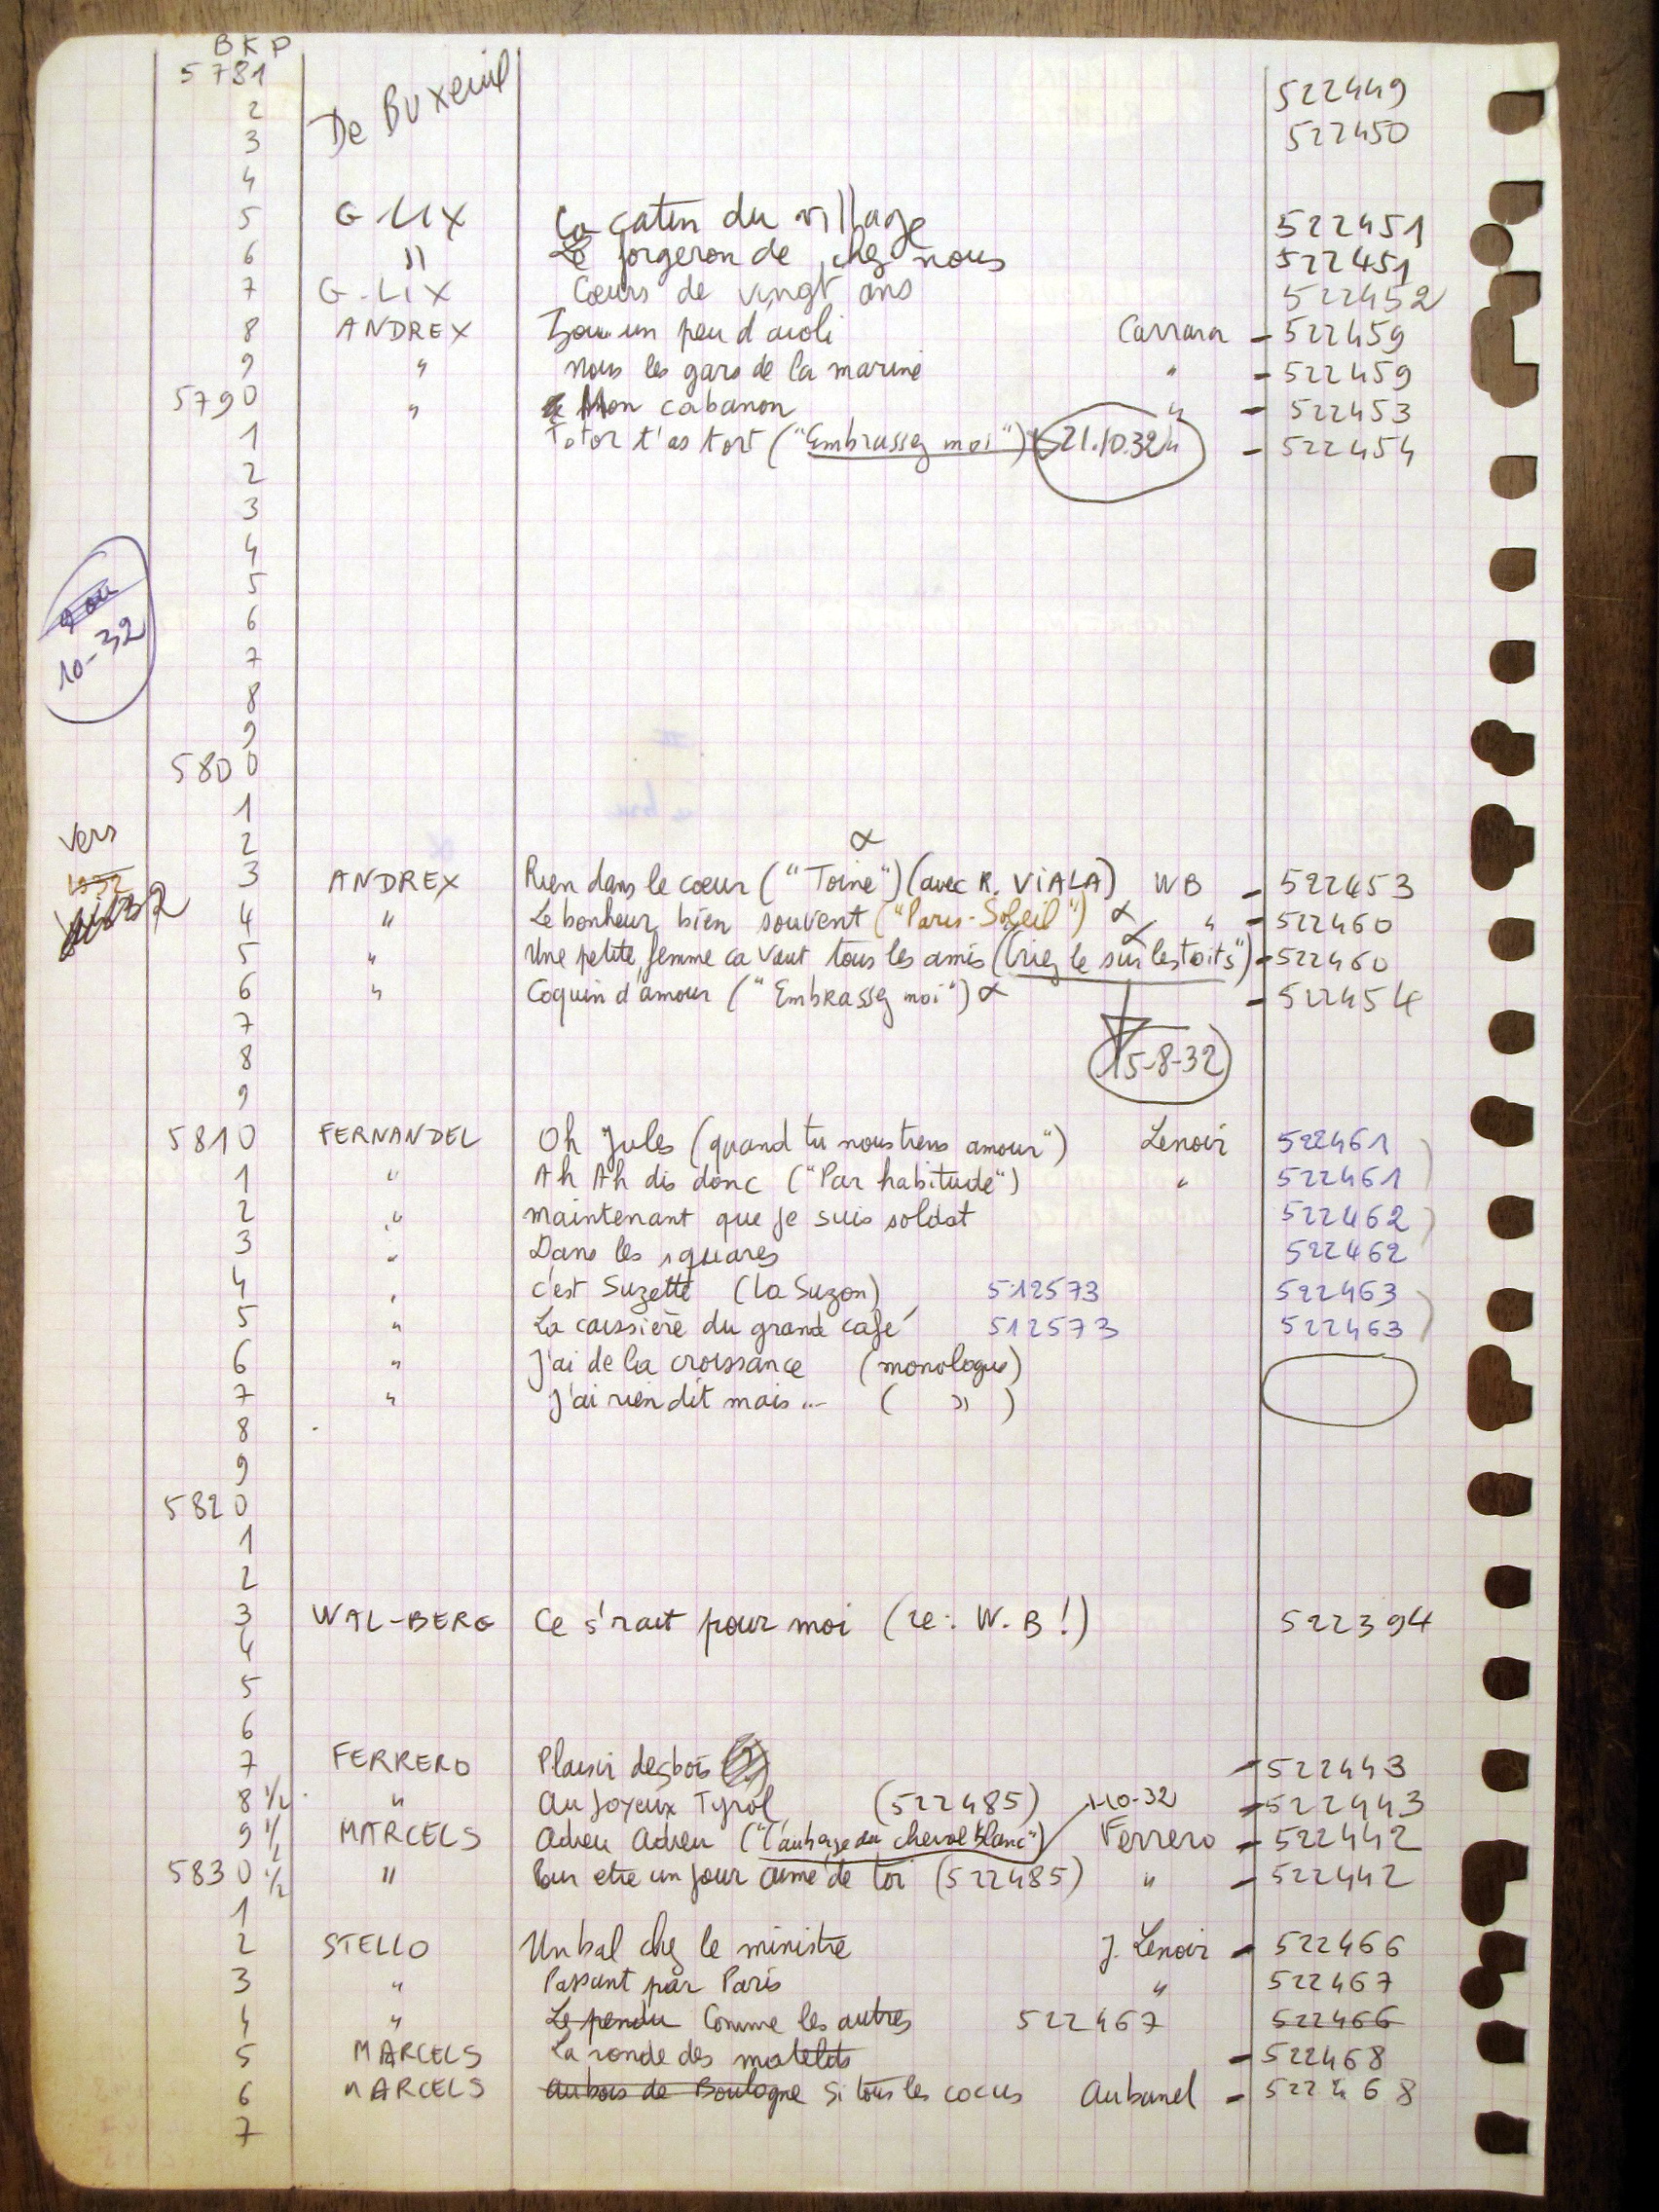 BKP
5781 De Buxeuil 522449
2 522450
3
4
5 G LIX La catin du village 522451
6 " Le forgeron de chez nous 522451
7 G-LIX Cœurs de vingt ans 522452
8 ANDREX Zou un peu d aioli Carrara - 522459
9 " Nous les gars de la marine " - 522459
5790 " Mon cabanon " - 522453
1 Totor t'as tort ("Embrassez moi") 21.10.32 " - 522454
2
3
4
5
6
10-32
7
8
9
5800
1
Vers
2 α
3 ANDREX Rien dans le cœur ("Toine") (avec R. ViALA) WB - 522453
4 " Le bonheur bien souvent ("Paris-Soleil") α " - 522460
5 " Une petite femme ca vaut tous les amis (Criez le sur les toits") α - 522460
6 " Coquin d'amour ("Embrassez moi") α - 522454
7
8 15-8-32
9
5810 FERNANDEL Oh Jules (quand tu nous tiens amour") Lenoir 522461
1 " Ah Ah dis donc ("Par habitude") " 522461
2 " maintenant que je suis soldat 522462
3 " Dans les squares 522462
4 " c'est Suzette (la Suzon) 512573 522463
5 " La caissière du grand café 512573 522463
6 " J'ai de la croissance (monologue)
7 " J'ai rien dit mais... ( " )
8
9
5820
1
2
3 WAL-BERG Ce s'rait pour moi (re: W.B!) 522394
4
5
6
7 FERRERO Plaisir des bois - 522443
8 1/2 " Au joyeux Tyrol (522485) 1-10-32 - 522443
9 1/2 MARCELS Adieu Adieu ("L'auberge du cheval blanc") Ferrero - 522442
5830 1/2 " Pour etre un jour aimé de toi (522485) " - 522442
1
2 STELLO Un bal chez le ministre J. Lenoir - 522466
3 " Passant par Paris " 522467
4 " Le pendu Comme les autres 522467 522466
5 MARCELS La ronde des matelots - 522468
6 MARCELS Au bois de Boulogne Si tous les cocus Aubanel - 522468
7